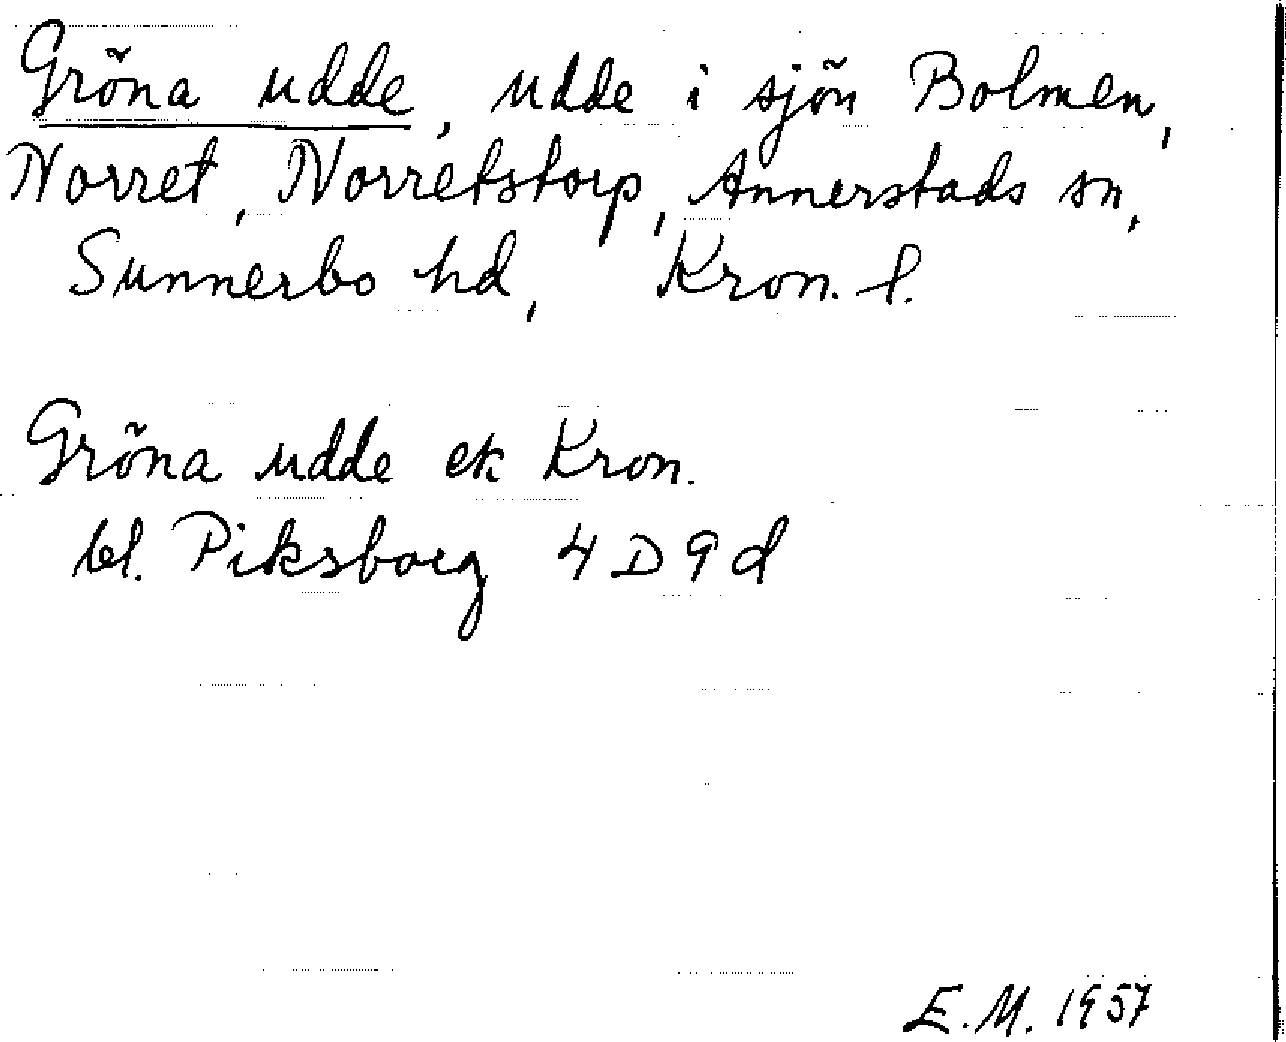 Gröna udde, udde i sjön Bolmen,
Norret, Norretstorp, Annerstads sn,
Sunnerbo hd, Kron. l.
Gröna udde ek Kron.
bl. Piksborg 4D9d
E.M. 1957